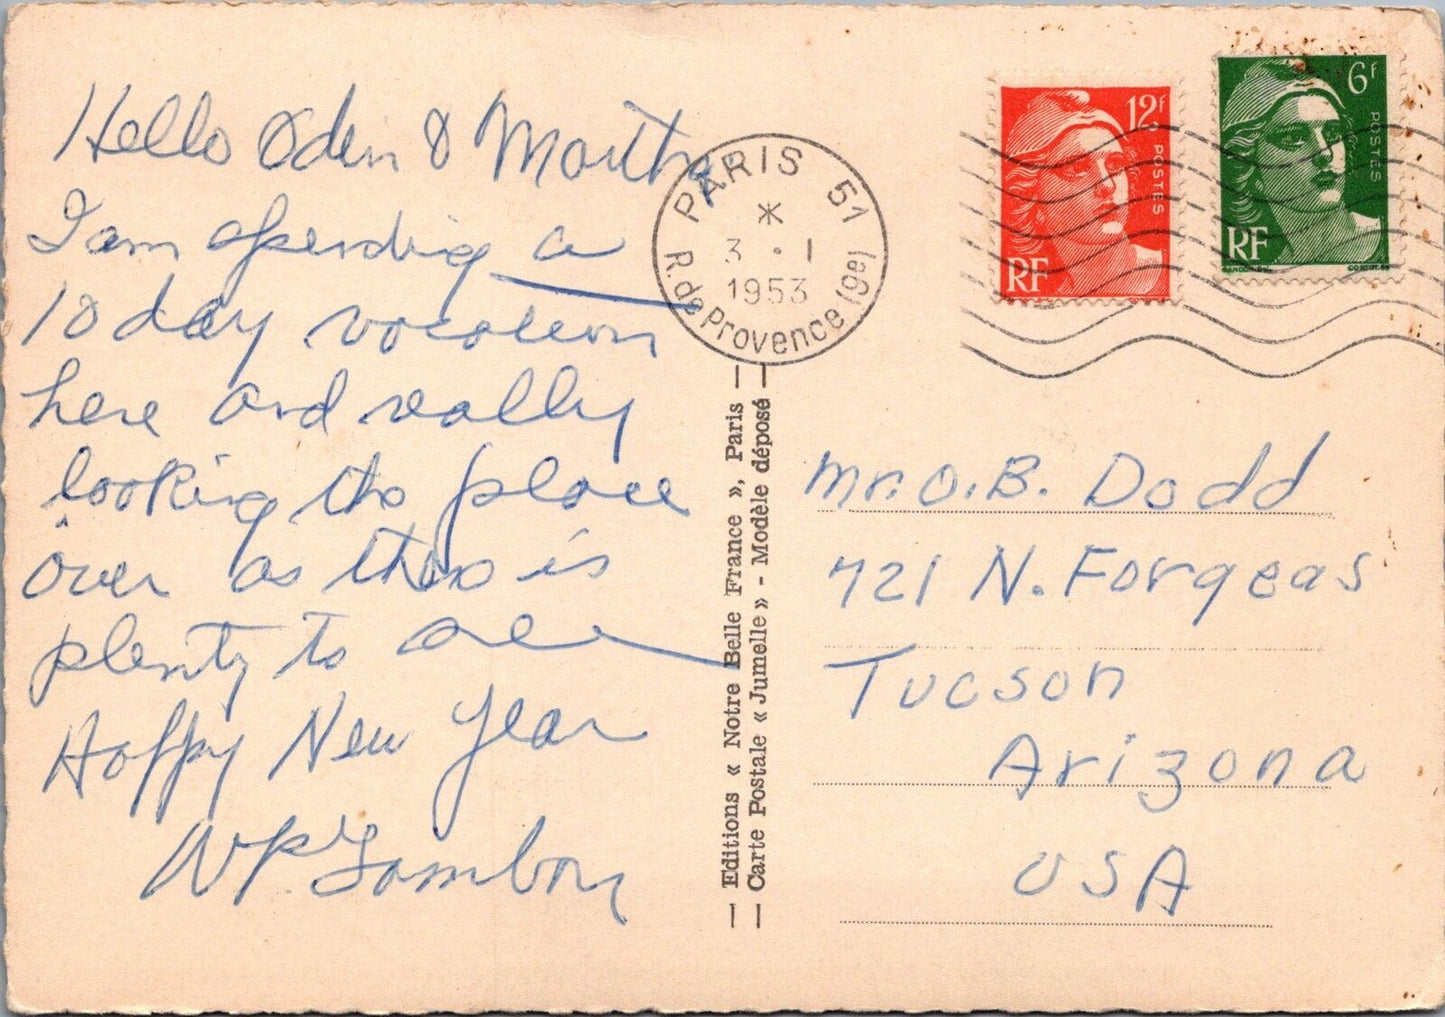 Hello Odin & Martha
I am spending a
10 day vacation
here and really
looking the place
over as there is
plenty to see
Happy New Year
WP
PARIS 51
3 • 1
1953
R. de Provence (9e)
12F
POSTES
RF
6F
POSTES
RF
— Editions « Notre Belle France », Paris —
— Carte Postale « Jumelle » - Modèle déposé —
Mr. O. B. Dodd
721 N. Forgeas
Tucson
Arizona
USA